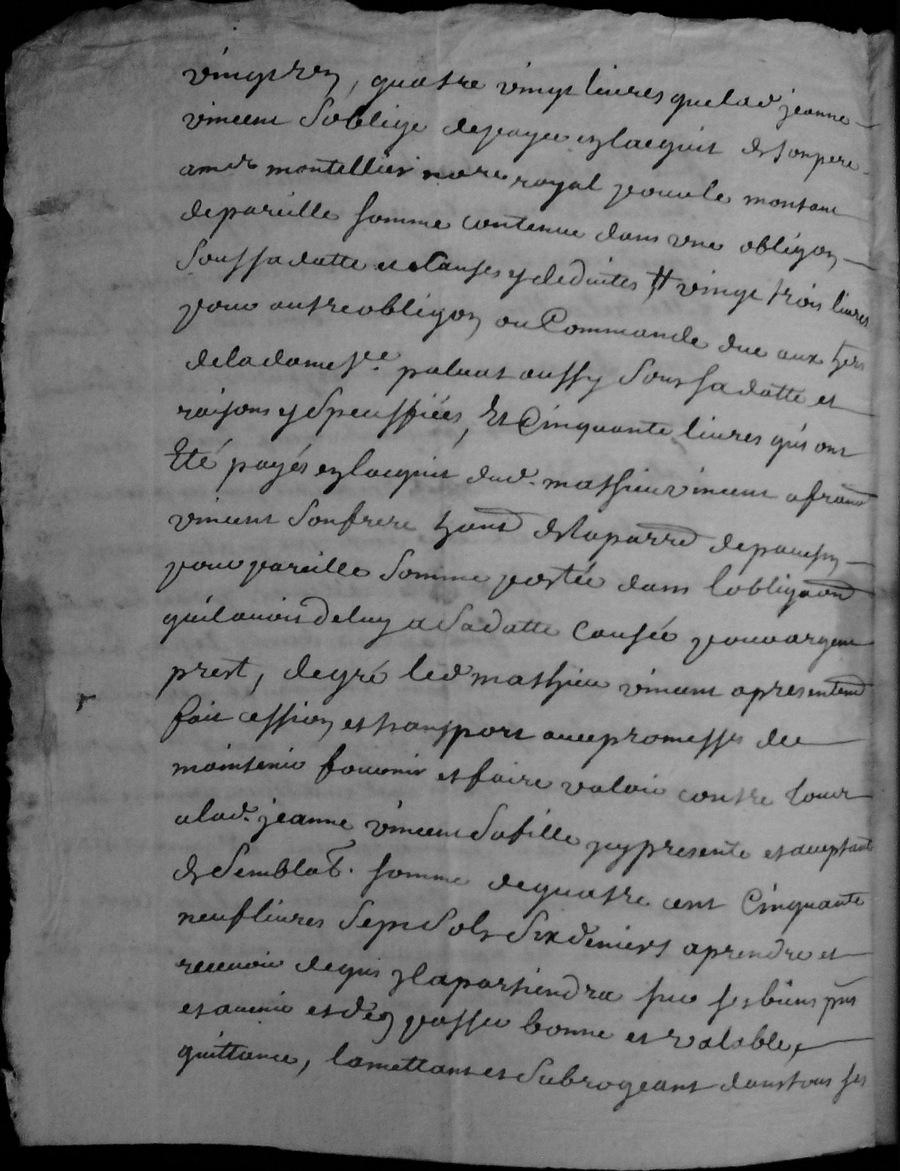 vingt , quatre vingt livres que lad jeanne
vincent soblige depayer en lacquit de son pere
a me montellier no.re royal pour le montant
depareille somme contenue dans une obligon
sous sa datte et clauses y deduites # vingt trois livres
pour autre obligon ou Commande due aux
de la dame palanat aussy sous sa datte et
raisons y speciffiées, Et Cinquante livres qui ont
Eté payés en lacquit dud. mathieu vincent a
vincent son frere de la depaulin
pour pareille somme portée dans lobliga.on
quil avoit deluy a sa datte causée pour argent
prest, de gré led mathieu vincent a presentem.t
fait cession et transport avec promesses de
maintenir fournir et faire valoir contre tous
a lad. jeanne vincent sa fille icy presente et acceptant
de semblab. somme de quatre cent Cinquante
neuf livres sept sols six deniers a prendre et
recevoir de qui il apartiendra sur ses biens p.nts
et avenir et den passer bonne et valable
quittance, la mettant et subrogeant dans tous ses